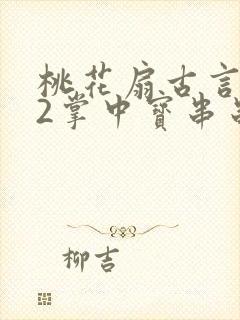 桃花扇古言
2掌中寳串
柳吉